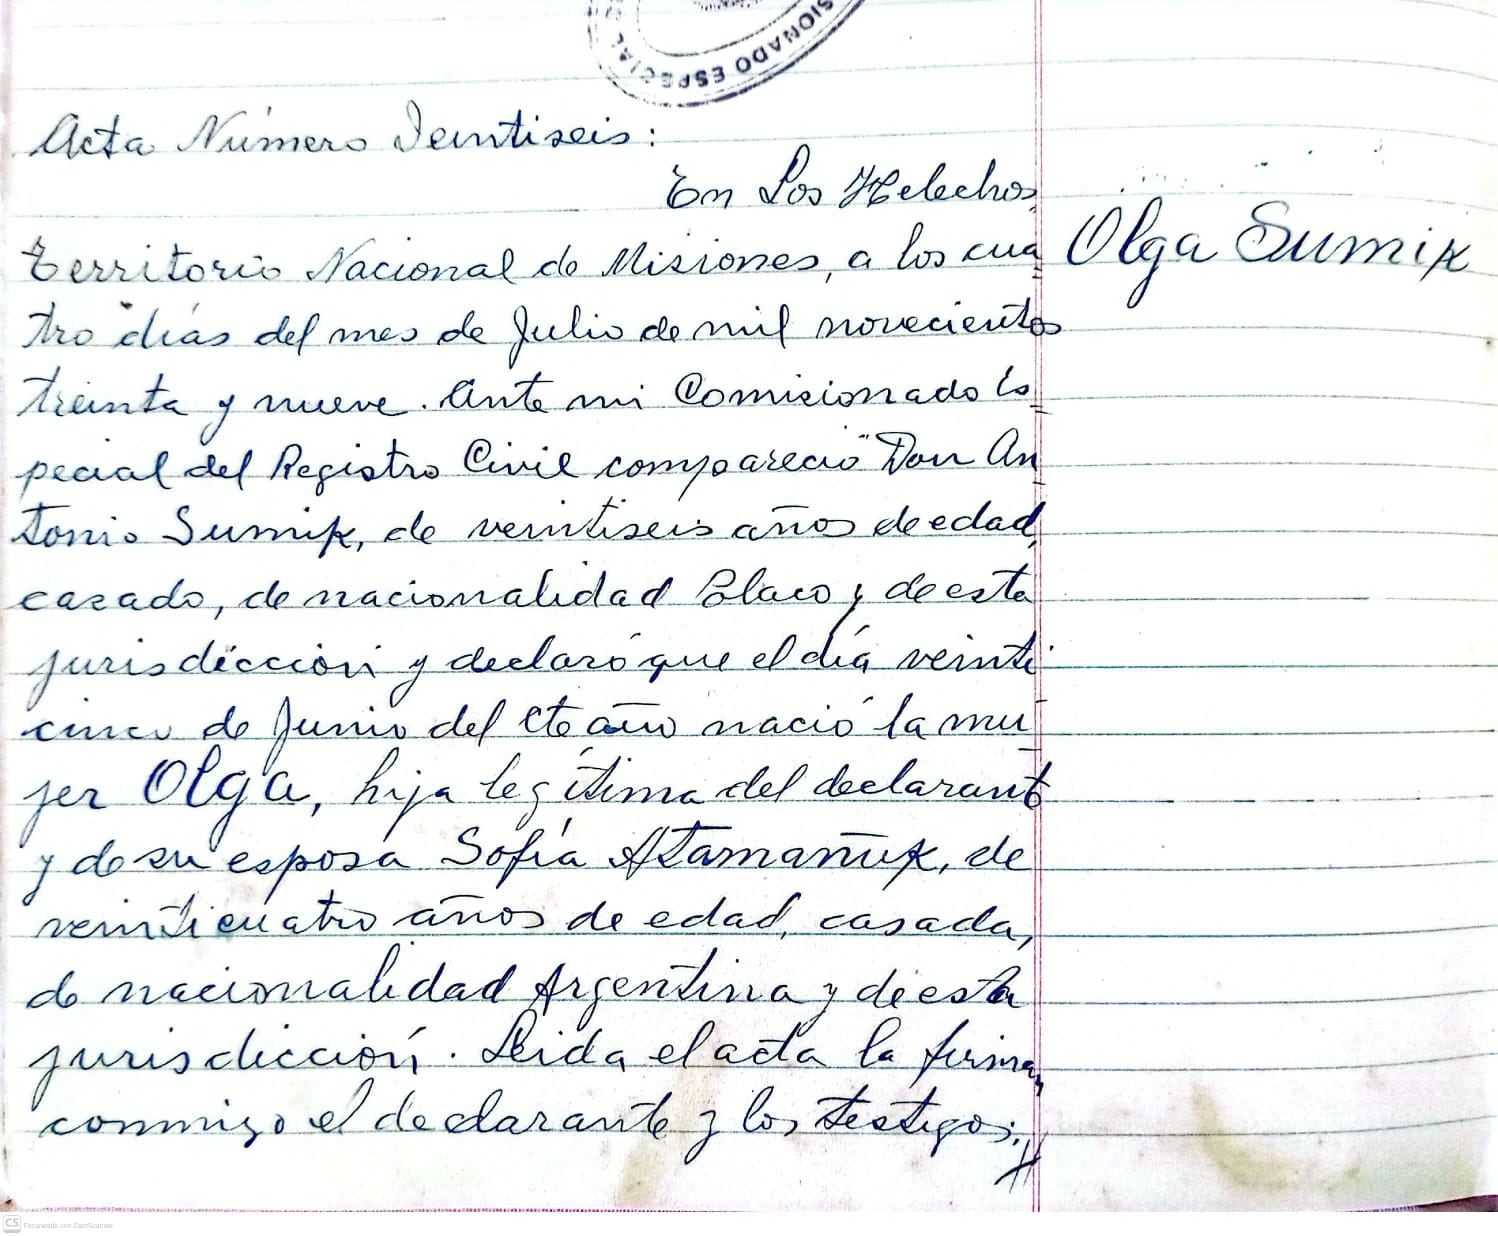 SIONADO ESPECIAL
Acta Número Veintiseis:
En Los Helechos,
Territorio Nacional de Misiones, a los cua
Olga Sumik
tro días del mes de Julio de mil novecientos
treinta y nueve. Ante mi Comisionado Es
pecial del Registro Civil compareció Don An
tonio Sumik, de veintiseis años de edad,
casado, de nacionalidad Polaco y de esta
jurisdicción y declaró que el día veinti
cinco de Junio del cte año nació la mu
jer Olga, hija legítima del declarante
y de su esposa Sofía Atamañuk, de
veinticuatro años de edad, casada,
de nacionalidad Argentina y de esta
jurisdicción. Leida el acta la firman
conmigo el declarante y los testigos.
CS Escaneado con CamScanner